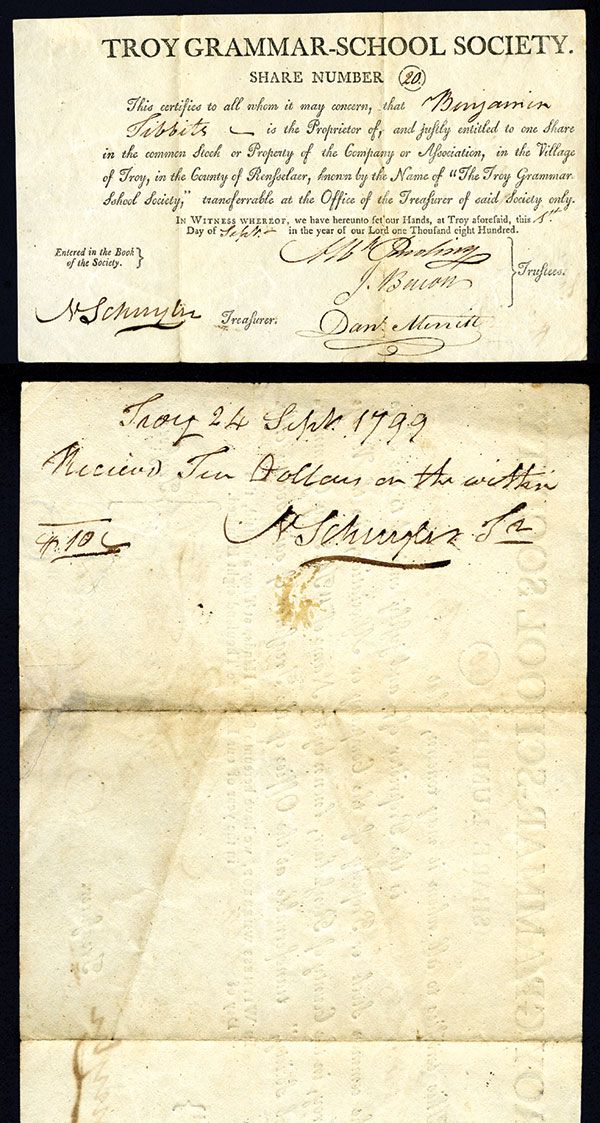 TROY GRAMMAR-SCHOOL SOCIETY.
SHARE NUMBER 20
This certifies to all whom it may concern, that Benjamin
Tibbits is the Proprietor of, and justly entitled to one Share
in the common Stock or Property of the Company or Aſſociation, in the Village
of Troy, in the County of Renſſelaer, known by the Name of "The Troy Grammar
School Society," transferrable at the Office of the Treaſurer of ſaid Society only.
In Witneſs whereof, we have hereunto ſet our Hands, at Troy aforeſaid, this 1st
Day of Sept. in the year of our Lord one Thouſand eight Hundred.
Entered in the Book
of the Society.
J. Bacon
Truſtees.
N Schuyler Treaſurer. Danl. Merritt
Troy 24 Sept. 1799
Recieved Ten Dollars on the within
N Schuyler Tr
$ 10